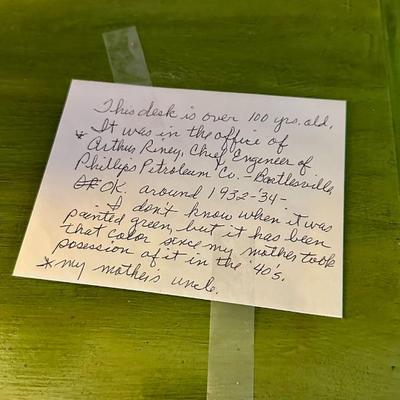 This desk is over 100 yrs. old.
* It was in the office of
Arthur Riney, Chief Engineer of
Phillips Petroleum Co. - Bartlesville,
OK around 1932-'34-
I don't know when it was
painted green, but it has been
that color since my mother took
posession of it in the '40's.
* my mother's uncle.